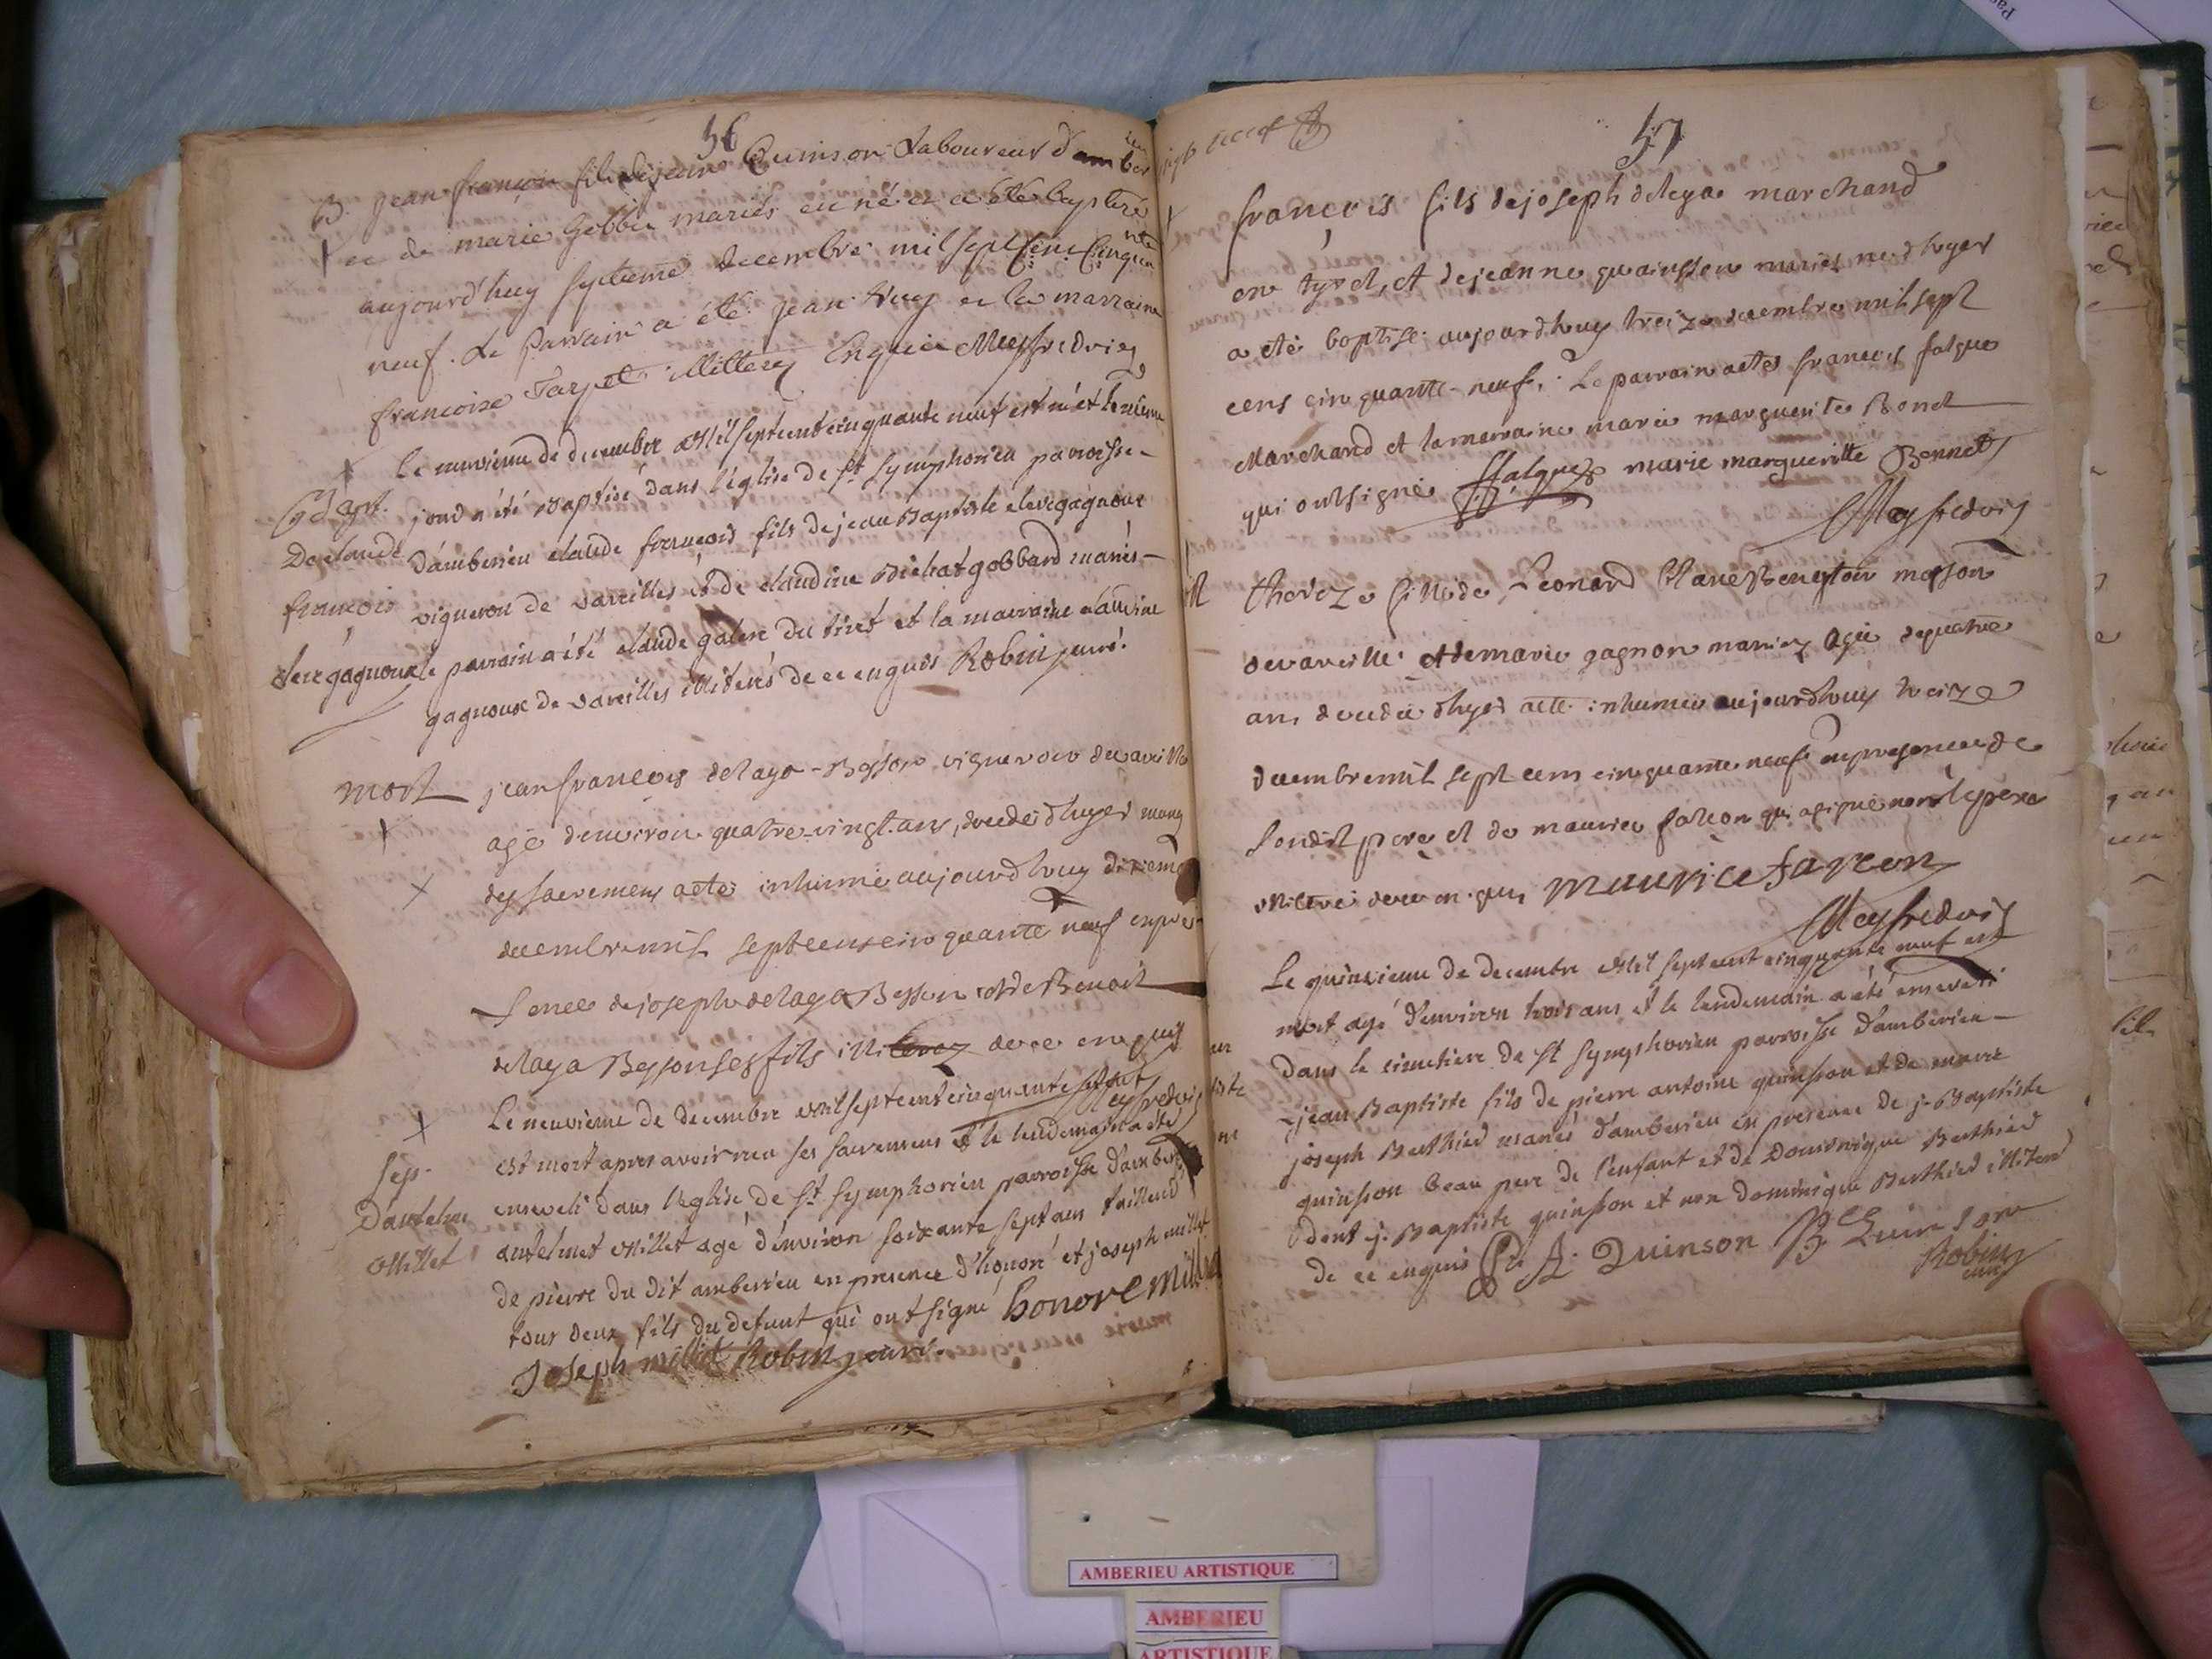 56
B. jean françois fils de jean Quinson Laboureur d'amber
ieu
et de marie Gobbin mariés est né et a été baptisé
aujourd'huy septieme decembre mil sept cent Cinqua
nte
neuf. Le Parrain a été jean et la marraine
francoise Tarpet illitterés Enquis Meyfredoin
le neuvieme de decembre mil sept cent cinquante neuf est né et le même
jour a été Baptisé dans l'église de st Symphorien paroisse
d'amberieu claude françois fils de jean Baptiste clergagnoux
vigneron de vareilles et de claudine gobbard mariés
le parrain a été claude du tiret et la marraine claudine
gagnoux de vareilles illiterés de ce enquis Robin curé.
De claude
françois
clergagnoux
mort
jean francois delaga-Besson vigneron de vareille
agé denviron quatre-vingt ans, decedé d'hyer muny
des sacremens a eté inhumé aujourdhuy dixieme
decembre mil sept cens cinquante neuf en pre-
sence de joseph delaga Besson et de Benoit
delaga Besson ses fils illiterez de ce enquis
Meyfredoin
Sep.
d'antelme
Millet
Le neuvieme de decembre mil sept cent cinquante neuf
est mort apres avoir reçu ses sacremens et le lendemain a été
enseveli dans l'eglise de st Symphorien paroisse d'amberieu
antelmet Millet agé d'environ soixante sept ans tailleur
de pierre du dit amberieu en presence d'honoré et joseph millet
tous deux fils du defunt qui ont signé honore Millet
Joseph millet Robin curé.
57
françois fils de joseph delaga marchand
au tyret, et de jeanne quinson mariés né d'hyer
a eté baptisé aujourdhuy treize decembre mil sept
cens cinquante-neuf. Le parrain a eté francois falque
Marchand et la marraine marie marguerite Bonet
qui ont signé ffalque marie marguerite Bonnet
Meyfredoin
thereze fille de Leonard masson
de vareille et de marie gagnon mariez agée de quatre
ans decedée d'hyer a eté inhumée aujourdhuy treize
decembre mil sept cens cinquante neuf en presence de
sondit pere et de maurice falcon qui a signé non le pere
illiteré de ce enquis maurice farcon
Meyfredoin
Le quinzieme de decembre mil sept cent cinquante neuf est
mort agé d'environ trois ans et le lendemain a été enseveli
dans le cimetiere de st Symphorien paroisse d'amberieu
jean Baptiste fils de pierre antoine quinson et de marie
joseph Berthier mariés d'amberieu en presence de j. Baptiste
quinson beau pere de l'enfant et de Dominique Berthier
dont j. Baptiste quinson et non dominique Berthier illiteré
de ce enquis P. A. Quinson B Quinson
Robin
curé
AMBERIEU ARTISTIQUE
AMBERIEU
ARTISTIQUE